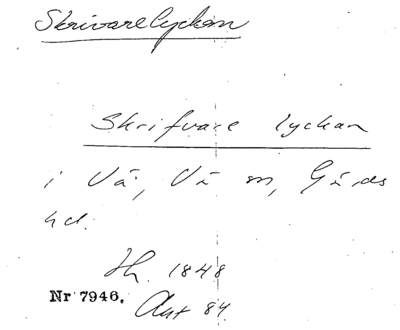 Skrivarelyckan
Skrifvare lyckan
i Vä, Vä sn, Gärds
hd.
Jh. 1848
Nr 7946. Akt 84.